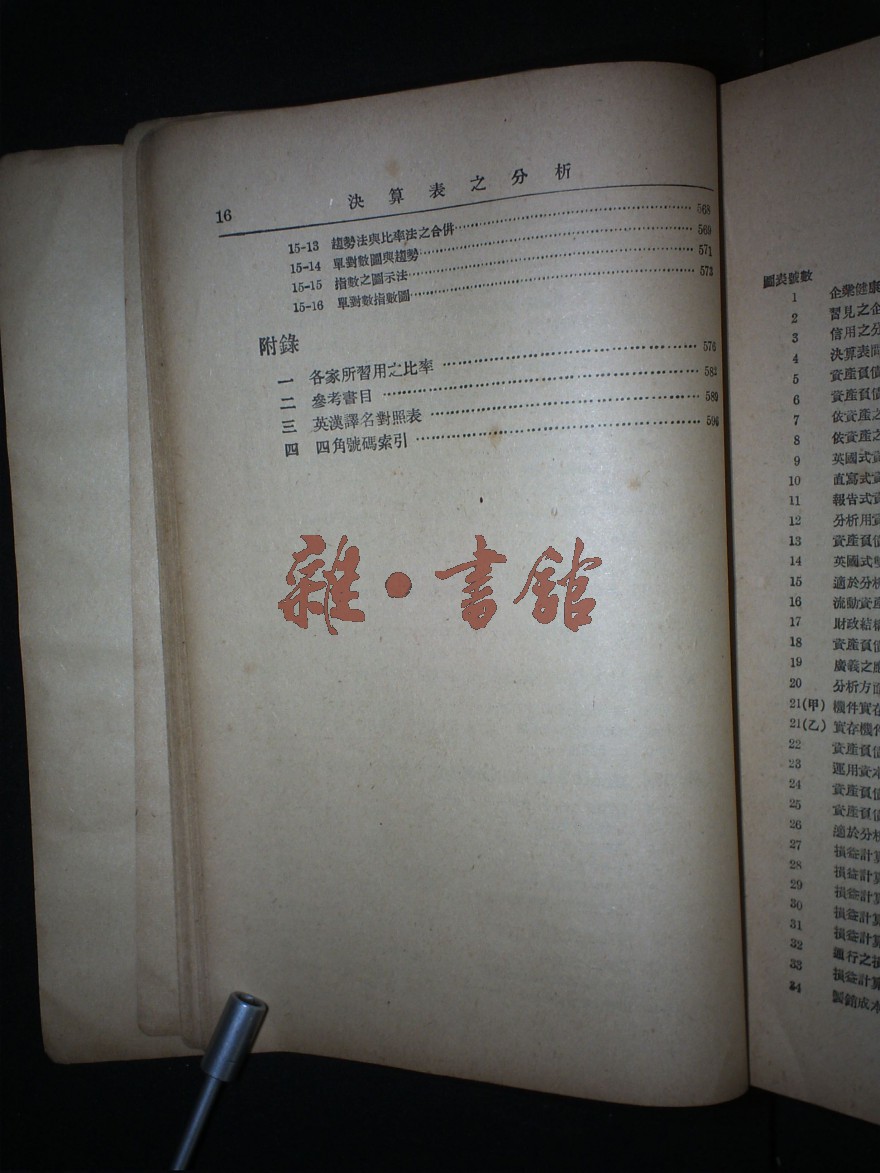 16 決算表之分析
15-13 趨勢法與比率法之合併 568
15-14 單對數圖與趨勢 569
15-15 指數之圖示法 571
15-16 單對數指數圖 573
附錄
一 各家所習用之比率 576
二 參考書目 582
三 英漢譯名對照表 589
四 四角號碼索引
雜·書館
圖表號數
1 企業健康
2 習見之企
3 信用之分
4 決算表間
5 資產負債
6 資產負債
7 依資產之
8 依資產之
9 英國式資
10 直寫式資
11 報告式資
12 分析用資
13 資產負債
14 英國式雙
15 適於分析
16 流動資產
17 財政結構
18 資產負債
19 廣義之應
20 分析方面
21(甲) 機件實存
21(乙) 實存機件
22 資產負債
23 運用資本
24 資產負債
25 資產負債
26 適於分析
27 損益計算
28 損益計算
29 損益計算
30 損益計算
31 損益計算
32 通行之損
33 損益計算
34 製銷成本